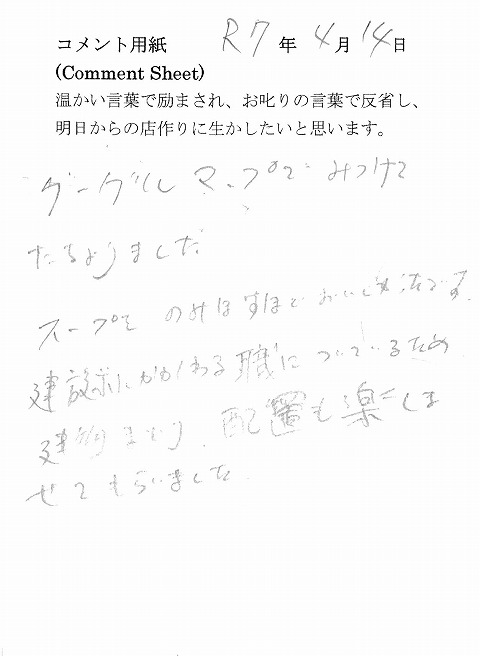 コメント用紙 R7年4月14日
(Comment Sheet)
温かい言葉で励まされ、お叱りの言葉で反省し、
明日からの店作りに生かしたいと思います。
グーグルマップで みつけて
たちよりました
スープを のみほすほど おいしかったです。
建設業にかかわる職に ついているため
建物まわり、配置も楽しま
せてもらいました